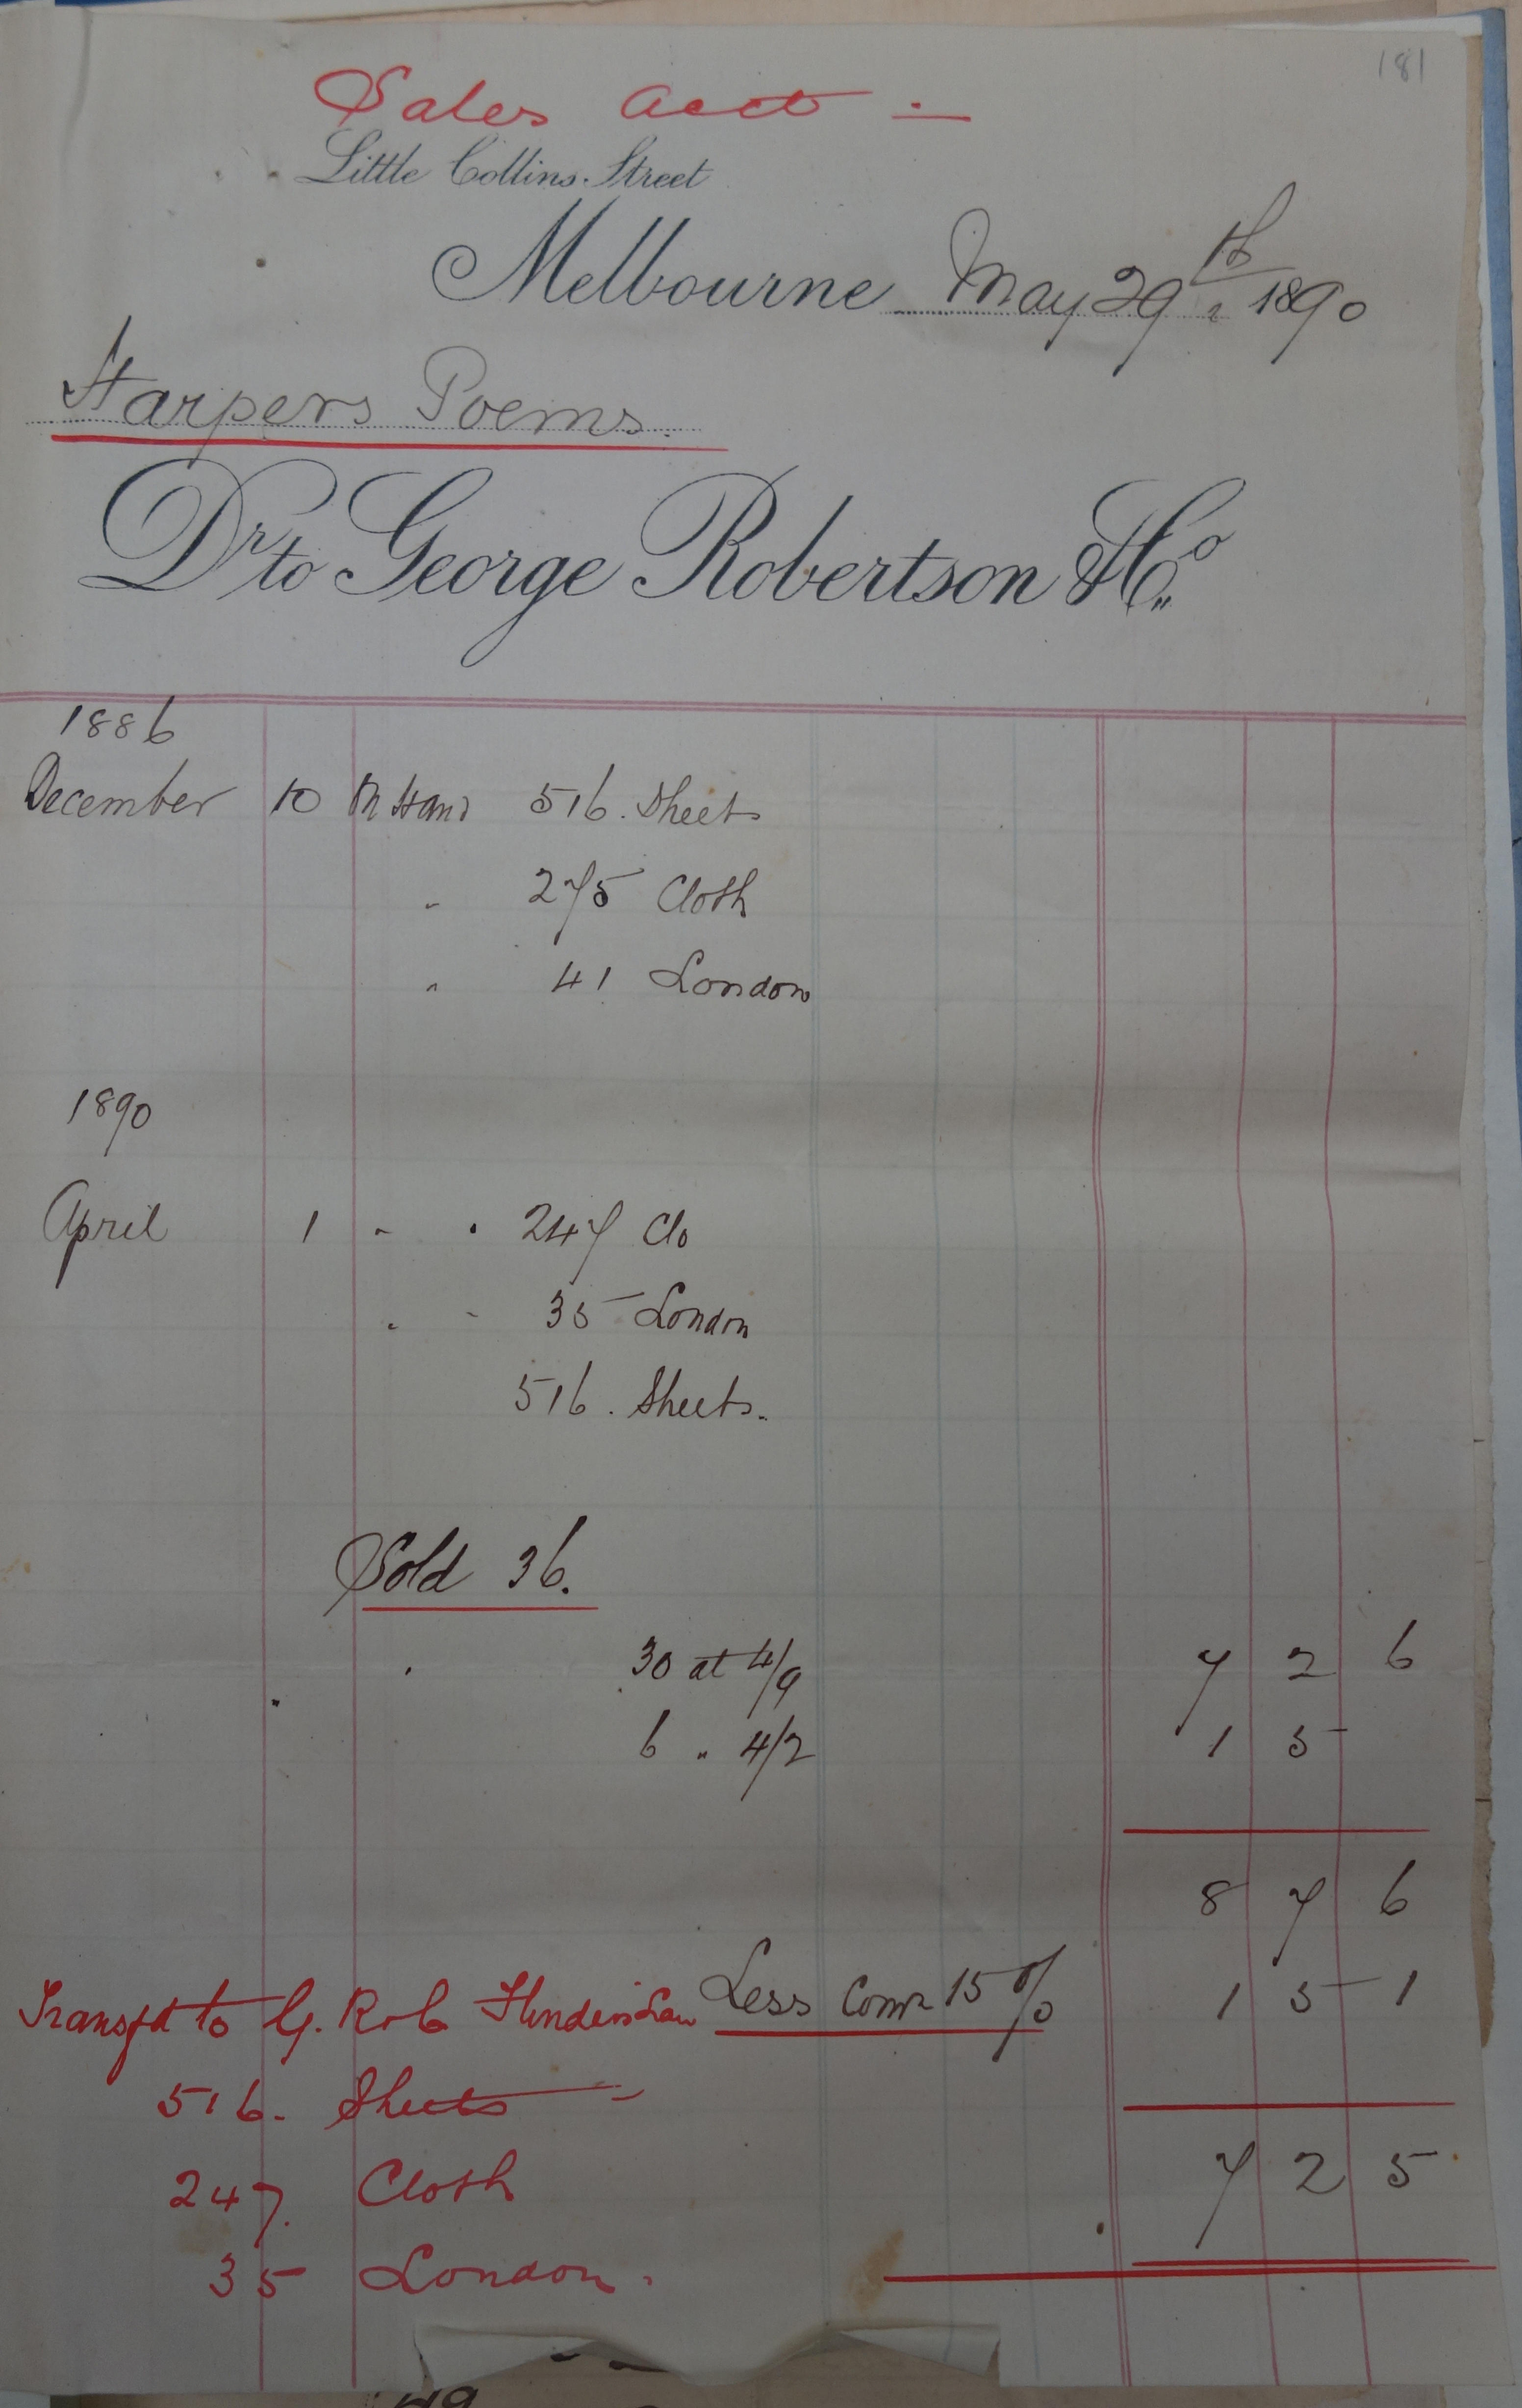 181
Sales acct -
Little Collins Street
Melbourne May 29th 1890
Harpers Poems.
Dr to George Robertson & Co
1886
December 10 On Hand 516. Sheets
" 275 Cloth
" 41 London
1890
April 1 " " 247 Clo
" " 35 London
516. Sheets.
Sold 36.
30 at 4/9 7 2 6
6 " 4/2 1 5 -
8 7 6
Transfd to G. Rob Flinders Lan Less Comn 15 % 1 5 1
516. Sheets
247. Cloth 7 2 5
35 London.